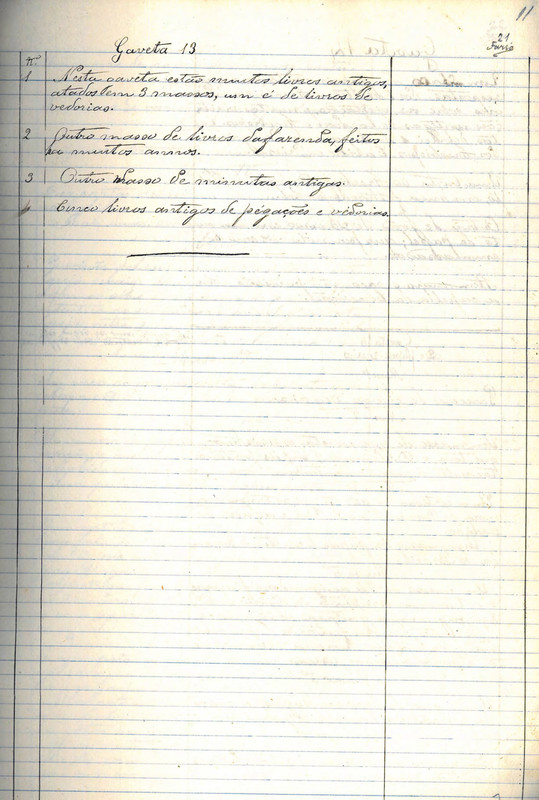 11
21
Gaveta 13
N.
1 Nesta gaveta estão muitos livros antigos,
atados em 3 massos, um é de livros de
vedorias.
2 Outro masso de livros da fazenda, feitos
a muitos annos.
3 Outro Masso de minutas antigas.
4 Cinco livros antigos de pégações e vedorias.